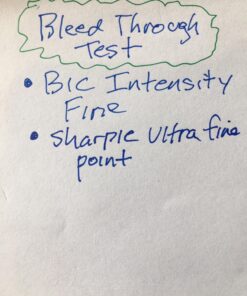 Bleed Through
Test
• Bic Intensity
Fine
• Sharpie Ultra fine
point